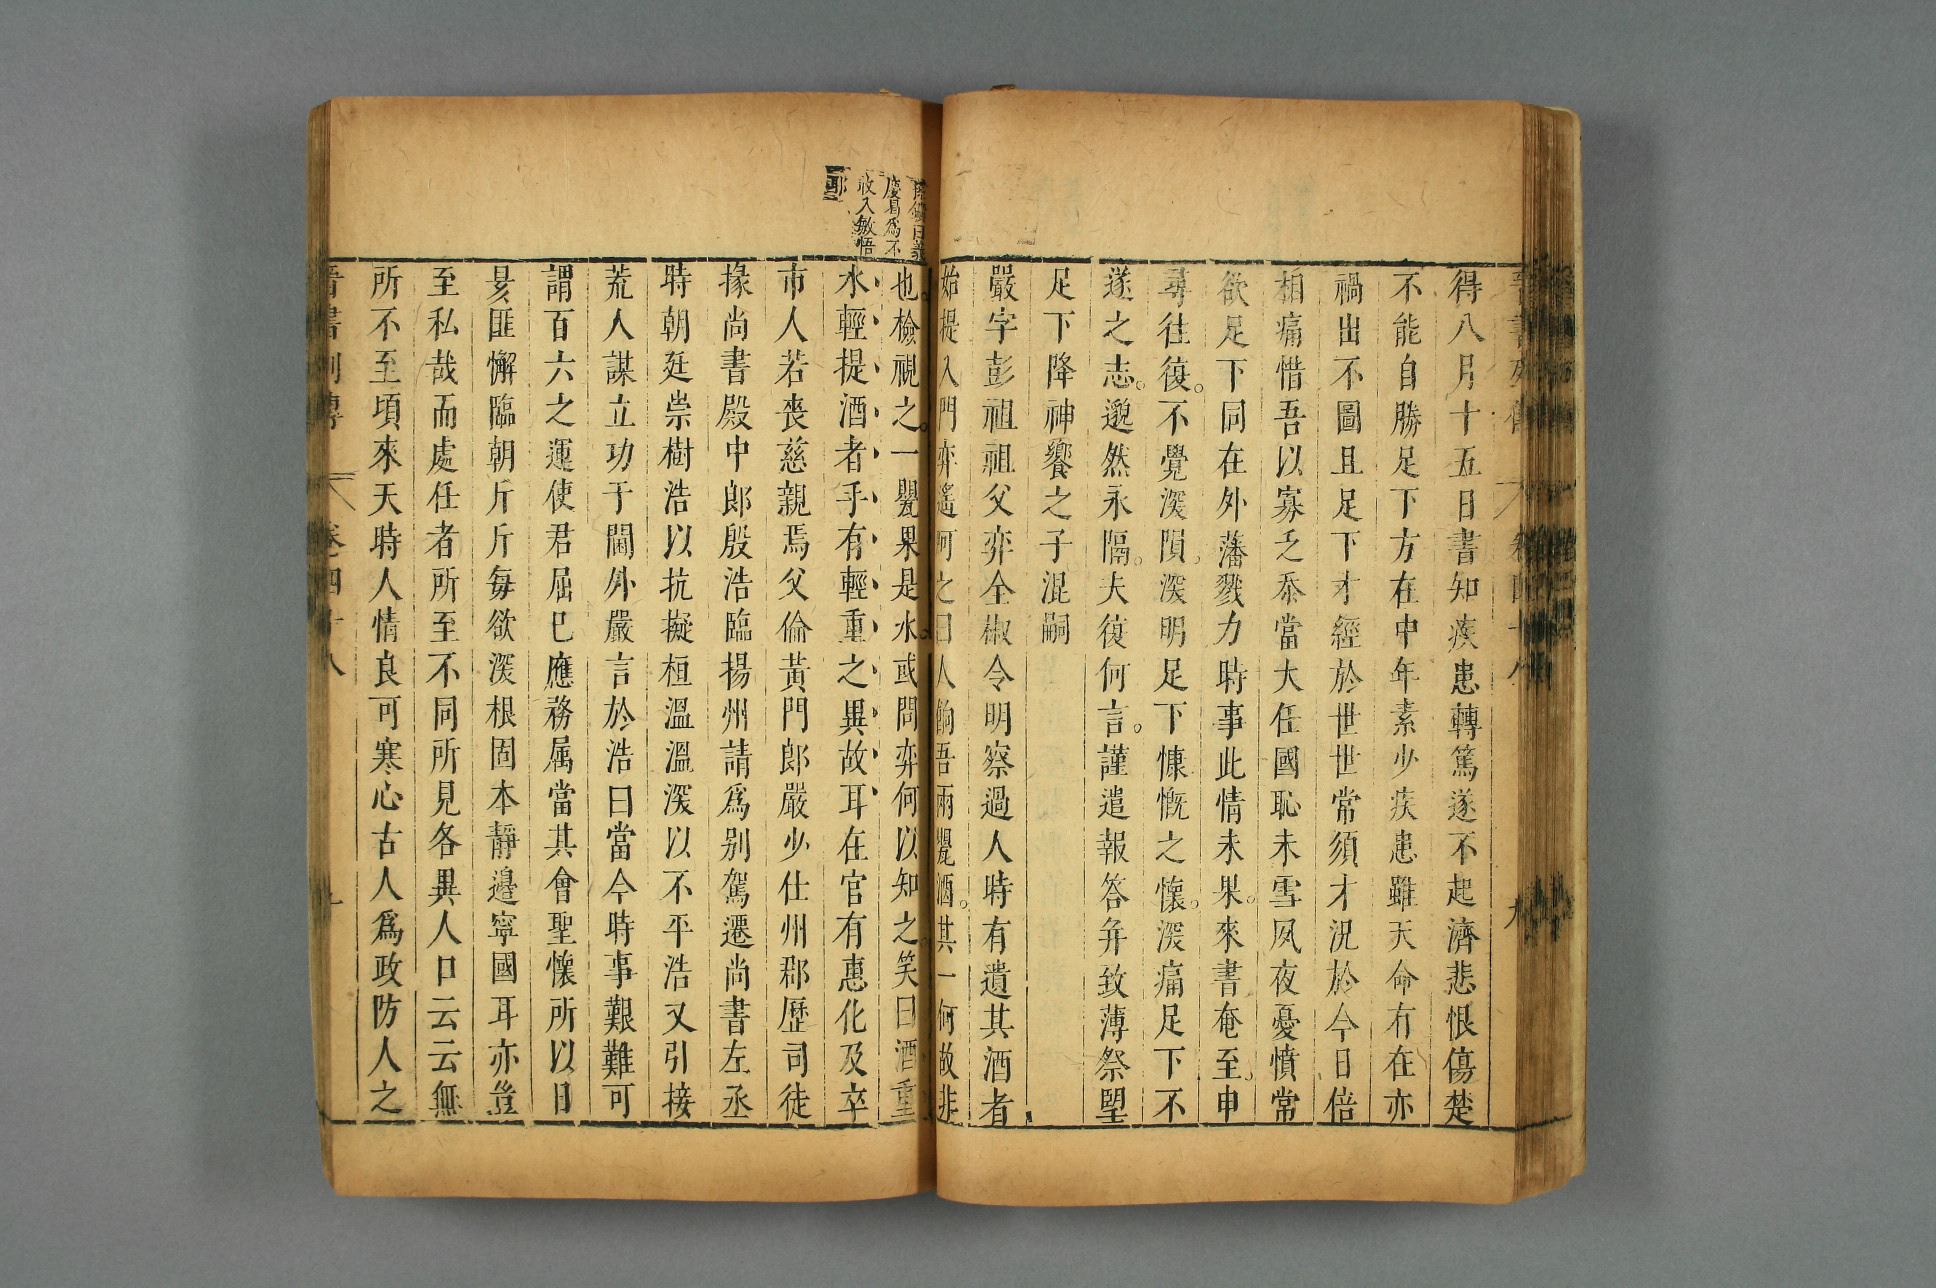 得八月十五日書知疾患轉篤遂不起濟悲恨傷楚
不能自勝足下方在中年素少疾患雖天命有在亦
禍出不圖且足下才經於世世常須才況於今日倍
相痛惜吾以寡乏忝當大任國恥未雪夙夜憂憤常
欲足下同在外藩戮力時事此情未果。來書奄至。申
尋往復。不覺深隕。深明足下慷慨之懷。深痛足下不
遂之志。邈然永隔。夫復何言。謹遣報答并致薄祭望
足下降神饗之子混嗣
嚴字彭祖祖父弈全椒令明察過人時有遺其酒者
始提入門弈遙呵之曰人餉吾兩甖酒。其一何故非
也。檢視之。一甖果是水或問弈何以知之笑曰酒重
水輕提酒者手有輕重之異故耳在官有惠化及卒
市人若喪慈親焉父倫黃門郎嚴少仕州郡歷司徒
掾尚書殿中郎殷浩臨揚州請爲别駕遷尚書左丞
時朝廷崇樹浩以抗擬桓溫溫深以不平浩又引接
荒人謀立功于閫外嚴言於浩曰當今時事艱難可
謂百六之運使君屈巳應務属當其會聖懷所以日
昃匪懈臨朝斤斤每欲深根固本靜邊寧國耳亦豈
至私哉而處任者所至不同所見各異人口云云無
所不至頃來天時人情良可寒心古人爲政防人之
晉書列傳 卷四十八
慶曷爲不
收入敏悟